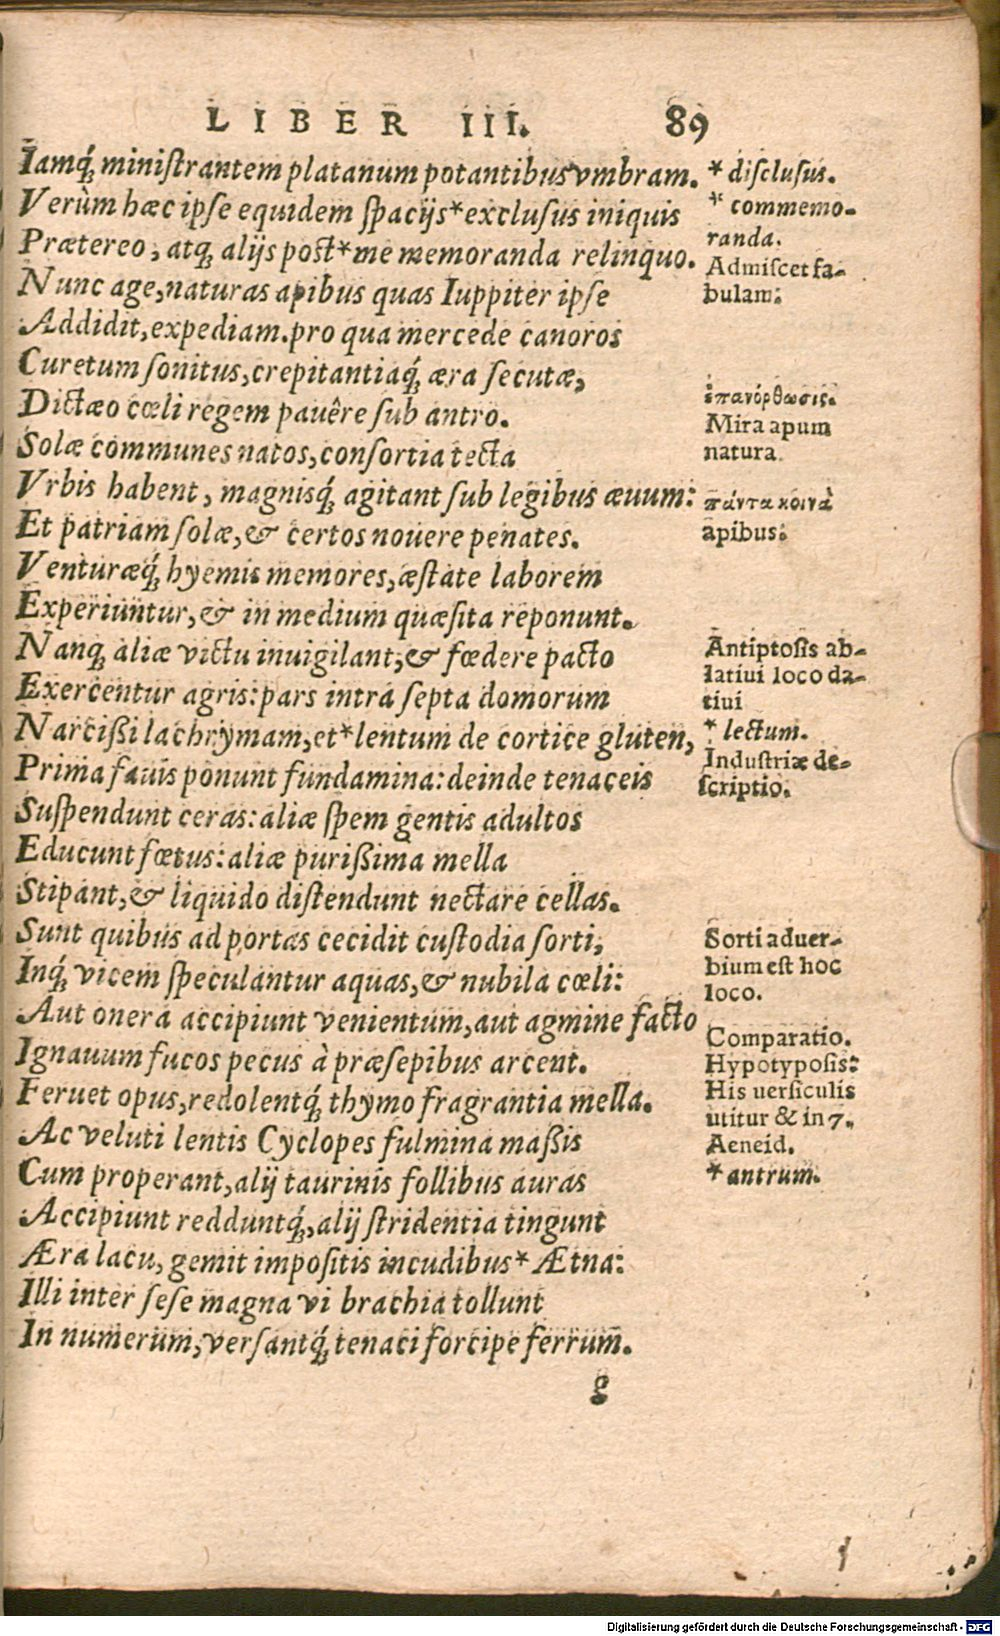 LIBER III. 89
Iamq́; ministrantem platanum potantibus vmbram.
Verùm hæc ipse equidem spacijs*exclusus iniquis
Prætereo, atq; alijs post*me memoranda relinquo.
Nunc age, naturas apibus quas Iuppiter ipse
Addidit, expediam. pro qua mercede canoros
Curetum sonitus, crepitantiaq́; æra secutæ,
Dictæo cœli regem pauêre sub antro.
Solæ communes natos, consortia tecta
Vrbis habent, magnisq́; agitant sub legibus æuum:
Et patriam solæ, & certos nouere penates.
Venturæq́; hyemis memores, æstate laborem
Experiuntur, & in medium quæsita reponunt.
Nanq; aliæ victu inuigilant, & fœdere pacto
Exercentur agris: pars intra septa domorum
Narcißi lachrymam, et*lentum de cortice gluten,
Prima fauis ponunt fundamina: deinde tenaceis
Suspendunt ceras: aliæ spem gentis adultos
Educunt fœtus: aliæ purißima mella
Stipant, & liquido distendunt nectare cellas.
Sunt quibus ad portas cecidit custodia sorti,
Inq́; vicem speculantur aquas, & nubila cœli:
Aut onera accipiunt venientum, aut agmine facto
Ignauum fucos pecus à præsepibus arcent.
Feruet opus, redolentq́; thymo fragrantia mella.
Ac veluti lentis Cyclopes fulmina maßis
Cum properant, alij taurinis follibus auras
Accipiunt redduntq́;, alij stridentia tingunt
Æra lacu, gemit impositis incudibus* Ætna:
Illi inter sese magna vi brachia tollunt
In numerum, versantq́; tenaci forcipe ferrum.
g
* disclusus.
* commemo-
randa.
Admiscet fa-
bulam.
ἐπανόρθωσις.
Mira apum
natura.
πάντα κοινὰ
apibus.
Antiptosis ab-
latiui loco da-
tiui
* lectum.
Industriæ de-
scriptio.
Sorti aduer-
bium est hoc
loco.
Comparatio.
Hypotyposis:
His uersiculis
utitur & in 7.
Aeneid.
* antrum.
Digitalisierung gefördert durch die Deutsche Forschungsgemeinschaft - DFG